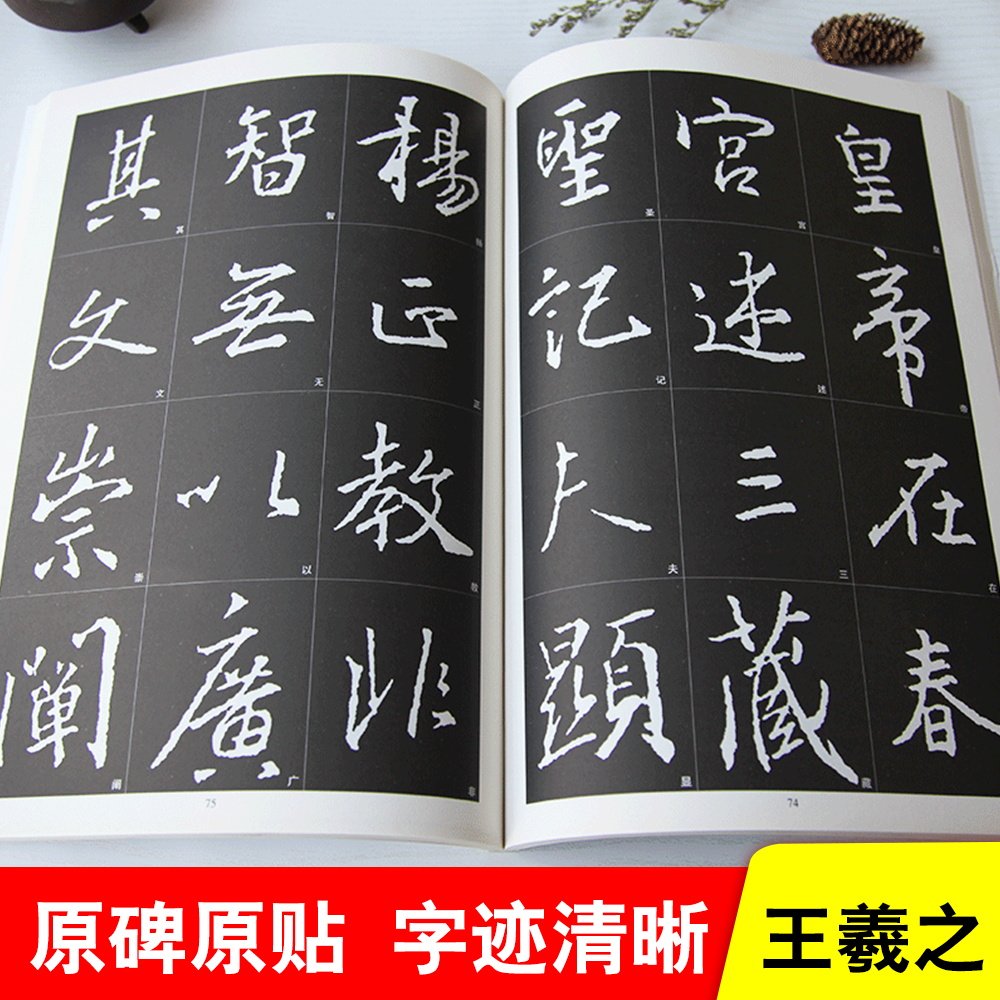 皇帝在春
皇帝在
宫述三藏
宫述三藏
聖記夫顯
圣记夫显
74
揚正教非
扬正教非
智無以廣
智无以广
其文崇闡
其文崇阐
75
原碑原贴 字迹清晰
王羲之